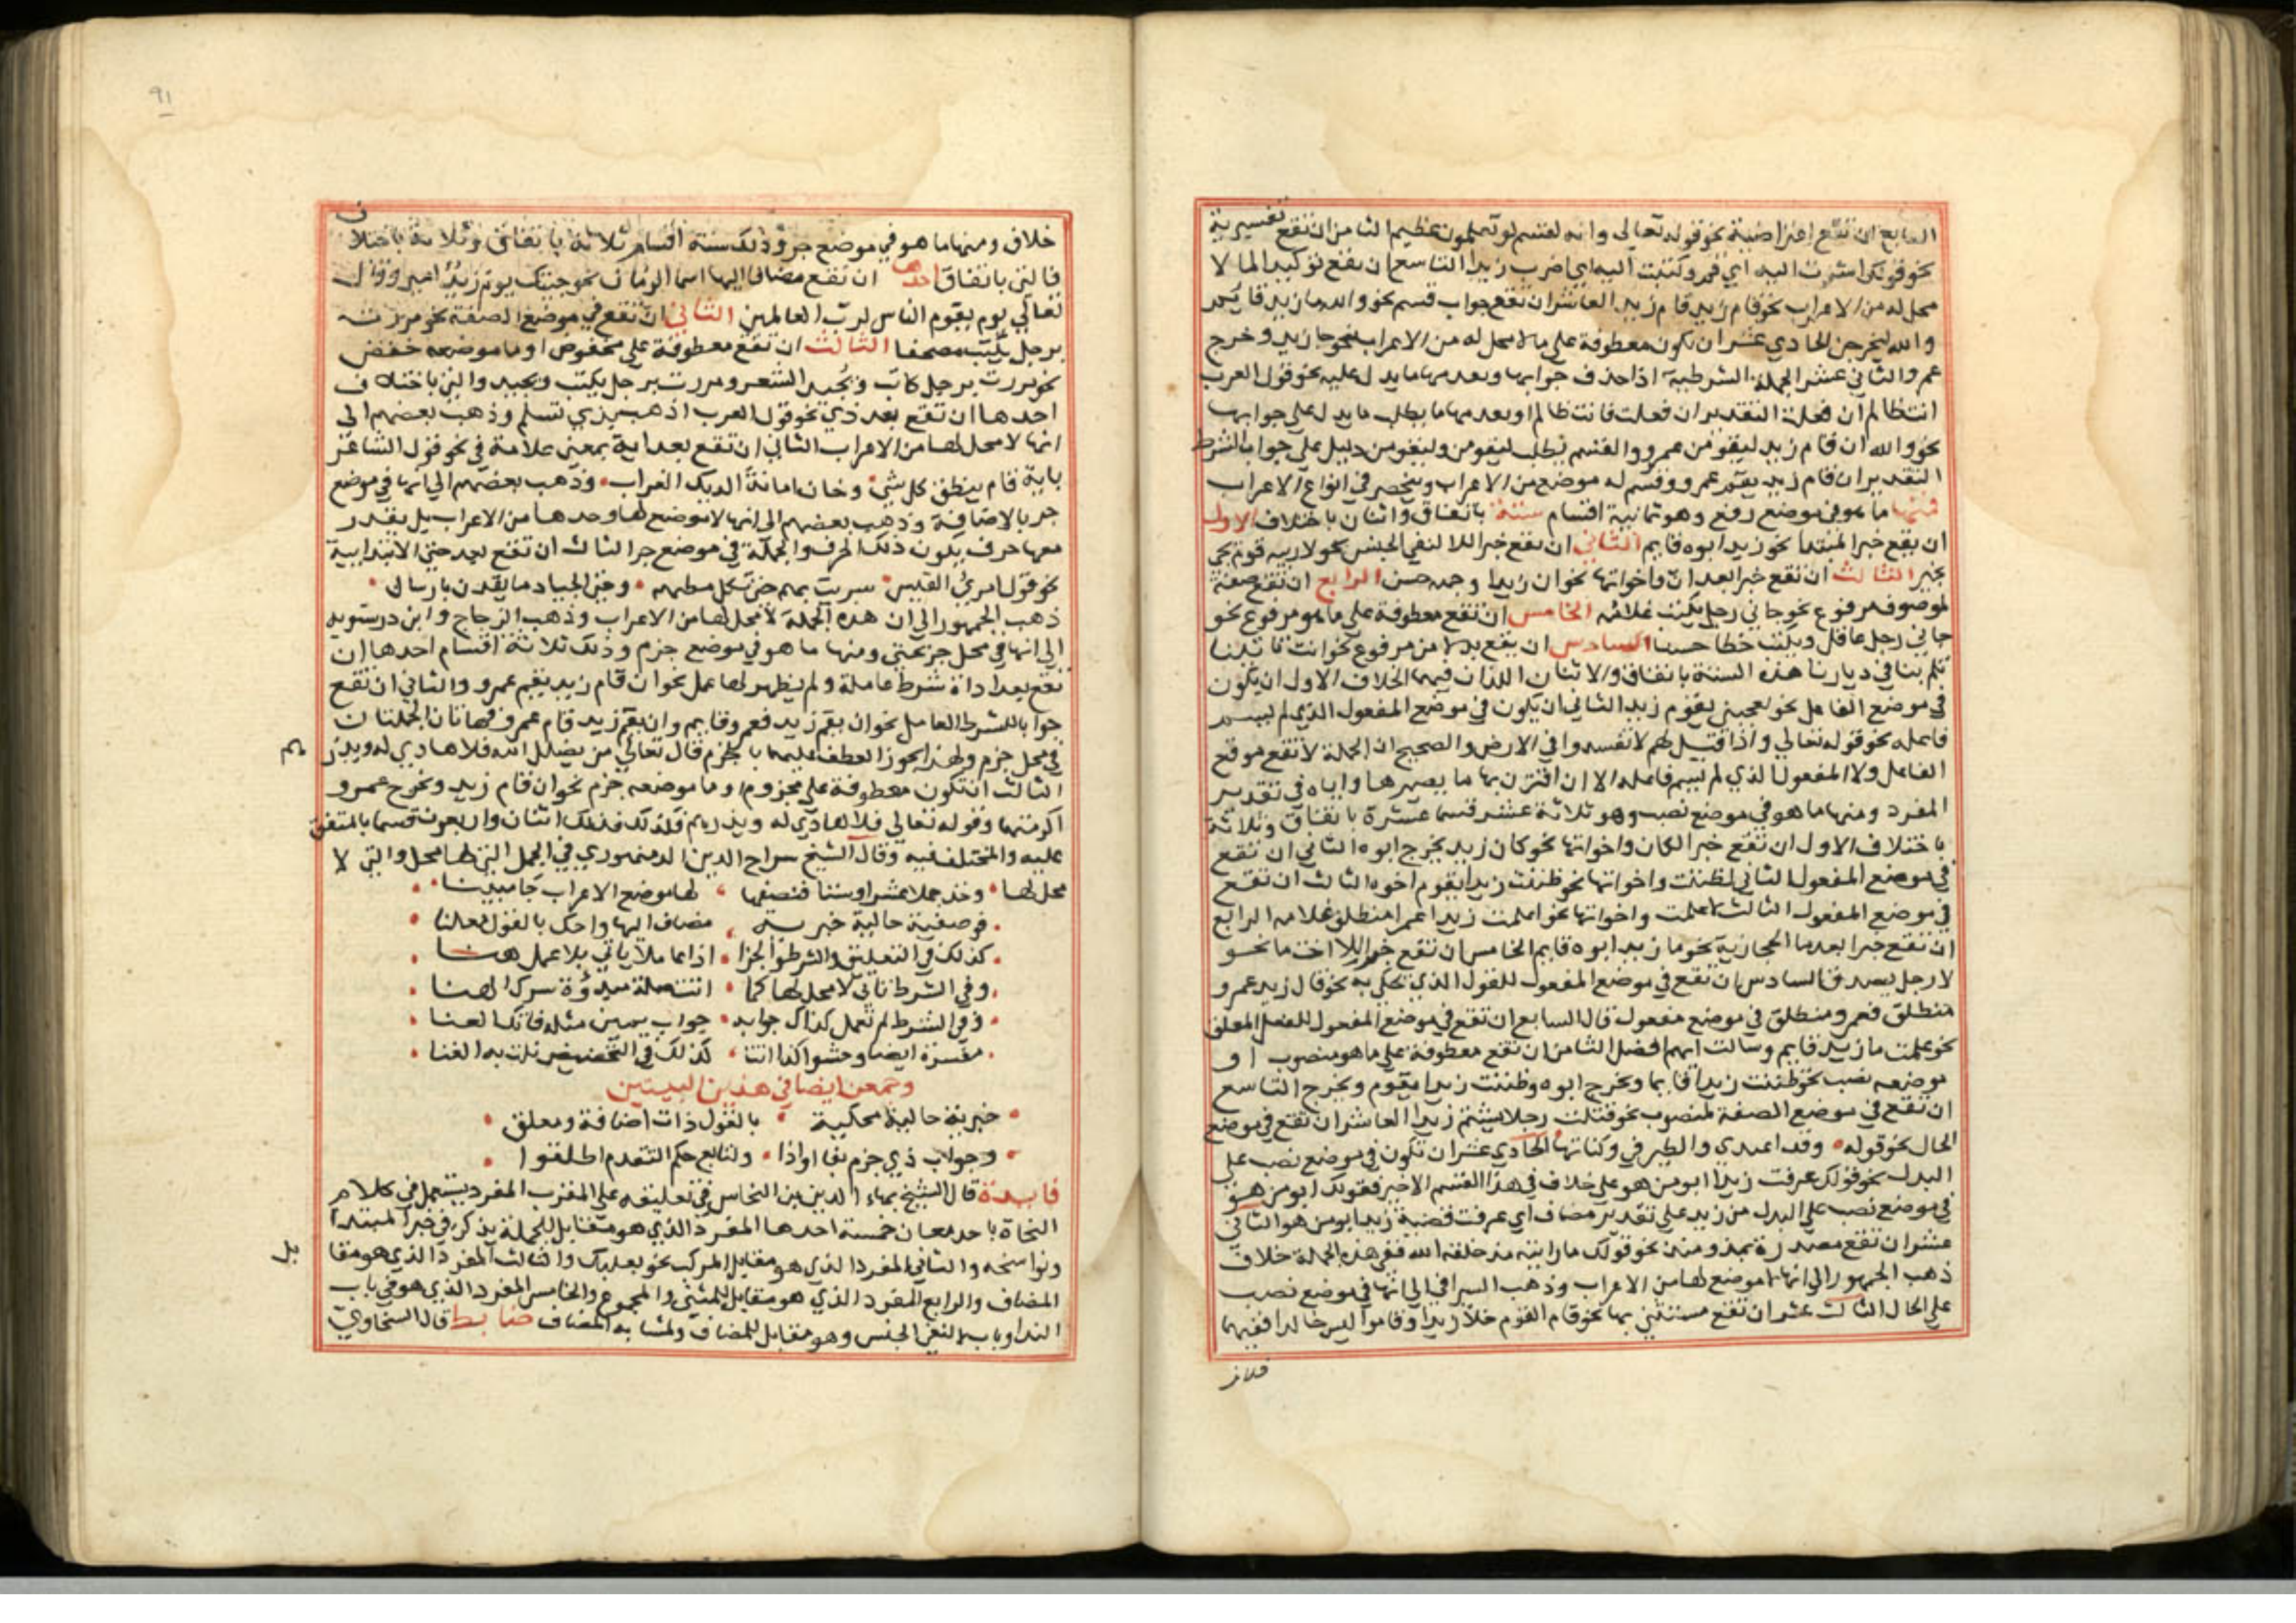 السابع ان تقع اعتراضية نحو قوله تعالى وانه لقسم لو تعلمون عظيم الثامن ان تقع تفسيرية
نحو قولك اشرت اليه اي قم وكتبت اليه اي اضرب زيدا التاسع ان تقع توكيدا لما لا
محل له من الاعراب نحو قام زيد قام زيد العاشر ان تقع جواب قسم نحو والله ما زيد قايم
والله ليخرجن الحادي عشر ان تكون معطوفة على ما لا محل له من الاعراب نحو جا زيد وخرج
عمرو الثاني عشر الجملة الشرطية اذا حذف جوابها وبعد منها ما يدل عليه نحو قول العرب
انت ظالم ان فعلت التقدير ان فعلت فانت ظالم او بعد منها ما يطلب ما يدل على جوابها
نحو والله ان قام زيد ليقومن عمرو والقسم يطلب ليقومن وليقومن دليل على جواب الشرط
التقدير ان قام زيد يقم عمرو وقسم له موضع من الاعراب وينحصر في انواع الاعراب
فمنها ما هو في موضع رفع وهو ثمانية اقسام ستة باتفاق واثنان باختلاف الاول
ان يقع خبرا لمبتدا نحو زيد ابوه قايم الثاني ان يقع خبرا للا لنفي الجنس نحو لا ربيه قوم يجي
بخير الثالث ان تقع خبرا بعد ان واخواتها نحو ان زيدا وجهه حسن الرابع ان تقع صفة
لموصوف مرفوع نحو جاني رجل يكتب غلامه الخامس ان تقع معطوفة على ما هو مرفوع نحو
جاني رجل عاقل ويكتب خطا حسنا السادس ان يقع بدلا من مرفوع نحو انت تاتينا
تلم بنا في ديارنا هذه الستة باتفاق والاثنان اللذان فيهما الخلاف الاول ان يكون
في موضع الفاعل نحو يعجبني يقوم زيد الثاني ان يكون في موضع المفعول الذي لم يسم
فاعله نحو قوله تعالى واذا قيل لهم لا تفسدوا في الارض والصحيح ان الجملة لا تقع موقع
الفاعل ولا المفعول الذي لم يسم فاعله الا ان اقترن بها ما يصيرها واياه في تقدير
المفرد ومنها ما هو في موضع نصب وهو ثلاثة عشر قسما عشرة باتفاق وثلاثة
باختلاف الاول ان تقع خبر الكان واخواتها نحو كان زيد يخرج ابوه الثاني ان تقع
في موضع المفعول الثاني لظننت واخواتها نحو ظننت زيدا يقوم اخوه الثالث ان تقع
في موضع المفعول الثالث لاعلمت واخواتها نحو اعلمت زيدا عمرا منطلق غلامه الرابع
ان تقع خبرا بعد ما الحجازية نحو ما زيد ابوه قايم الخامس ان تقع خبرا للا اخت ما نحو
لا رجل يصدق السادس ان تقع في موضع المفعول للقول الذي يحكى به نحو قال زيد عمرو
منطلق فعمرو منطلق في موضع مفعول قال السابع ان تقع في موضع المفعول للفعل المعلق
نحو علمت ما زيد قايم وسالت ايهم افضل الثامن ان تقع معطوفة على ما هو منصوب او
موضعه نصب نحو ظننت زيدا قايما ويخرج ابوه وظننت زيدا يقوم ويخرج التاسع
ان تقع في موضع الصفة لمنصوب نحو قتلت رجلا يشتم زيدا العاشر ان تقع في موضع
الحال نحو قوله وقد اغتدي والطير في وكناتها الحادي عشر ان تكون في موضع نصب على
البدل نحو قولك عرفت زيدا ابو من هو على خلاف في هذا القسم الاخير فقولك ابو من هو
في موضع نصب على البدل من زيد على تقدير مضاف اي عرفت قضية زيد ابو من هو الثاني
عشر ان تقع مصدرة بمذ ومنذ نحو قولك ما رايته مذ خلقه الله ففي هذه الجملة خلاف
ذهب الجمهور الى انها لا موضع لها من الاعراب وذهب السيرافي الى انها في موضع نصب
على الحال الثالث عشر ان تقع مستثنى بها نحو قام القوم خلا زيدا وقاموا ليس خالدا ففيهما
خلاف
٩١
خلاف ومنها ما هو في موضع جر وذلك ستة اقسام ثلاثة باتفاق وثلاثة باختلاف
فالتي باتفاق احدها ان تقع مضافا اليها اسما الزمان نحو جيتك يوم زيد امير وقال
تعالى يوم يقوم الناس لرب العالمين الثاني ان تقع في موضع الصفة نحو مررت
برجل يكتب مصحفا الثالث ان تقع معطوفة على مخفوض او ما موضعه خفض
نحو مررت برجل كاتب ويجيد الشعر ومررت برجل يكتب ويجيد والتي باختلاف
احدها ان تقع بعد ذي نحو قول العرب اذهب بذي تسلم وذهب بعضهم الى
انها لا محل لها من الاعراب الثاني ان تقع بعد اية بمعنى علامة في نحو قول الشاعر
باية قام ينطق كل شي وخان امانة الديك الغراب وذهب بعضهم الى انها في موضع
جر بالاضافة وذهب بعضهم الى انها لا موضع لها وحدها من الاعراب بل يقدر
معها حرف يكون ذلك الحرف والجملة في موضع جر الثالث ان تقع بعد حتى الابتدايية
نحو قول امرئ القيس سريت بهم حتى تكل مطيهم وحتى الجياد ما يقدن بارسان
ذهب الجمهور الى ان هذه الجملة لا محل لها من الاعراب وذهب الزجاج وابن درستويه
الى انها في محل جر بحتى ومنها ما هو في موضع جزم وذلك ثلاثة اقسام احدها ان
تقع بعد اداة شرط عاملة ولم يظهر لها عمل نحو ان قام زيد يقم عمرو والثاني ان تقع
جوابا للشرط العامل نحو ان يقم زيد فعمرو قايم وان يقم زيد قام عمرو فهاتان الجملتان
في محل جزم ولهذا يجوز العطف عليهما بالجزم قال تعالى من يضلل الله فلا هادي له ويذر
هم
الثالث ان تكون معطوفة على مجزوم او ما موضعه جزم نحو ان قام زيد ويخرج عمرو
اكرمتهما وقوله تعالى فلا هادي له ويذرهم فلذلك فذلك اثنان واربعون قسما بالمتفق
عليه والمختلف فيه وقال الشيخ سراج الدين الدمنهوري في الجمل التي لها محل والتي لا
محل لها وخذ جملا عشرا وستا فنصفها لها موضع الاعراب جا مبينا
فوصفية حالية خبرية مضاف اليها واحك بالقول معلنا
كذلك في التعليق والشرط والجزا اذا عامل ياتي بلا عمل هنا
وفي الشرط ثاني لا محل لها كما اتت صلة مبدوة سرك الهنا
وفي الشرط لم تعمل كذاك جوابه جواب يمين مثله فاتك العنا
مفسرة ايضا وحشوا كذا اتت كذلك في التحضيض نلت به الغنا
وجمعن ايضا في هذين البيتين
خبرية حالية محكية بالقول ذات اضافة ومعلق
وجواب ذي جزم بفا او اذا ولتابع حكم التقدم اطلقوا
فايدة قال الشيخ بهاء الدين بن النحاس في تعليقه على المقرب المفرد يستعمل في كلام
النحاة باحد معان خمسة احدها المفرد الذي هو مقابل للجملة يذكر في خبر المبتدا
ونواسخه والثاني المفرد الذي هو مقابل المركب نحو بعلبك والثالث المفرد الذي هو مقا
بل
المضاف والرابع المفرد الذي هو مقابل للمثنى والمجموع والخامس المفرد الذي هو في باب
الندا وباب لا لنفي الجنس وهو مقابل للمضاف ولمشابه المضاف ضابط قال السخاوي